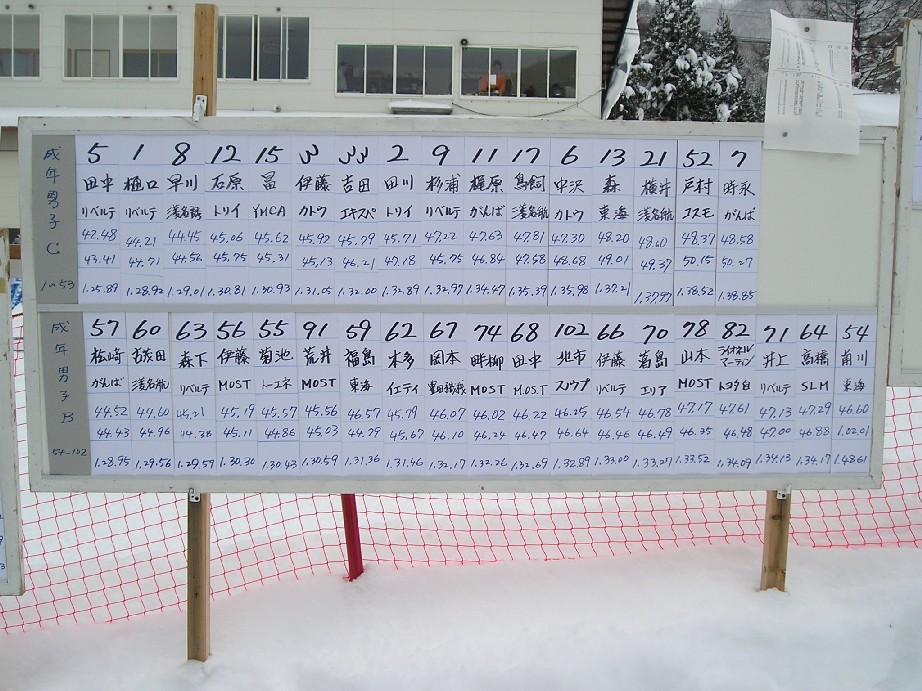 成年男子C 1〜53
5 1 8 12 15 3 33 2 9 11 17 6 13 21 52 7
田中 樋口 早川 石原 冨 伊藤 吉田 田川 杉浦 梶原 鳥飼 中沢 森 横井 戸村 時永
リベルテ リベルテ トリイ YMCA カトウ エキスペ トリイ リベルテ がんば 浅名航 カトウ 東海 浅名航 コスモ がんば
42.48 44.21 44.45 45.06 45.62 45.92 45.79 45.71 47.22 47.63 47.81 47.30 48.20 48.60 48.37 48.58
43.41 44.71 44.56 45.75 45.31 45.13 46.21 47.18 45.75 46.84 47.58 48.68 49.01 49.37 50.15 50.27
1.25.89 1.28.92 1.29.01 1.30.81 1.30.93 1.31.05 1.32.00 1.32.89 1.32.97 1.34.47 1.35.39 1.35.98 1.37.21 1.37.97 1.38.52 1.38.85
成年男子B 54-102
57 60 63 56 55 91 59 62 67 74 68 102 66 70 78 82 71 64 54
松崎 森下 伊藤 菊池 荒井 福島 本多 岡本 畔柳 田中 北市 伊藤 葛島 山本 ライオネルマーティン 井上 高橋 前川
がんば 浅名航 リベルテ MOST トーエネ MOST 東海 イエティ MOST M.O.S.T スノウプ リベルテ エリア MOST トヨタ自 リベルテ SLM 東海
44.52 44.60 45.21 45.19 45.57 45.56 46.57 45.79 46.07 46.02 46.22 46.25 46.54 46.78 47.17 47.61 47.13 47.29 46.60
44.43 44.96 44.38 45.11 44.86 45.03 44.79 45.67 46.10 46.24 46.47 46.64 46.46 46.49 46.35 46.48 47.00 46.88 1.02.01
1.28.95 1.29.56 1.29.59 1.30.30 1.30.43 1.30.59 1.31.36 1.31.46 1.32.17 1.32.26 1.32.69 1.32.89 1.33.00 1.33.27 1.33.52 1.34.09 1.34.13 1.34.17 1.48.61